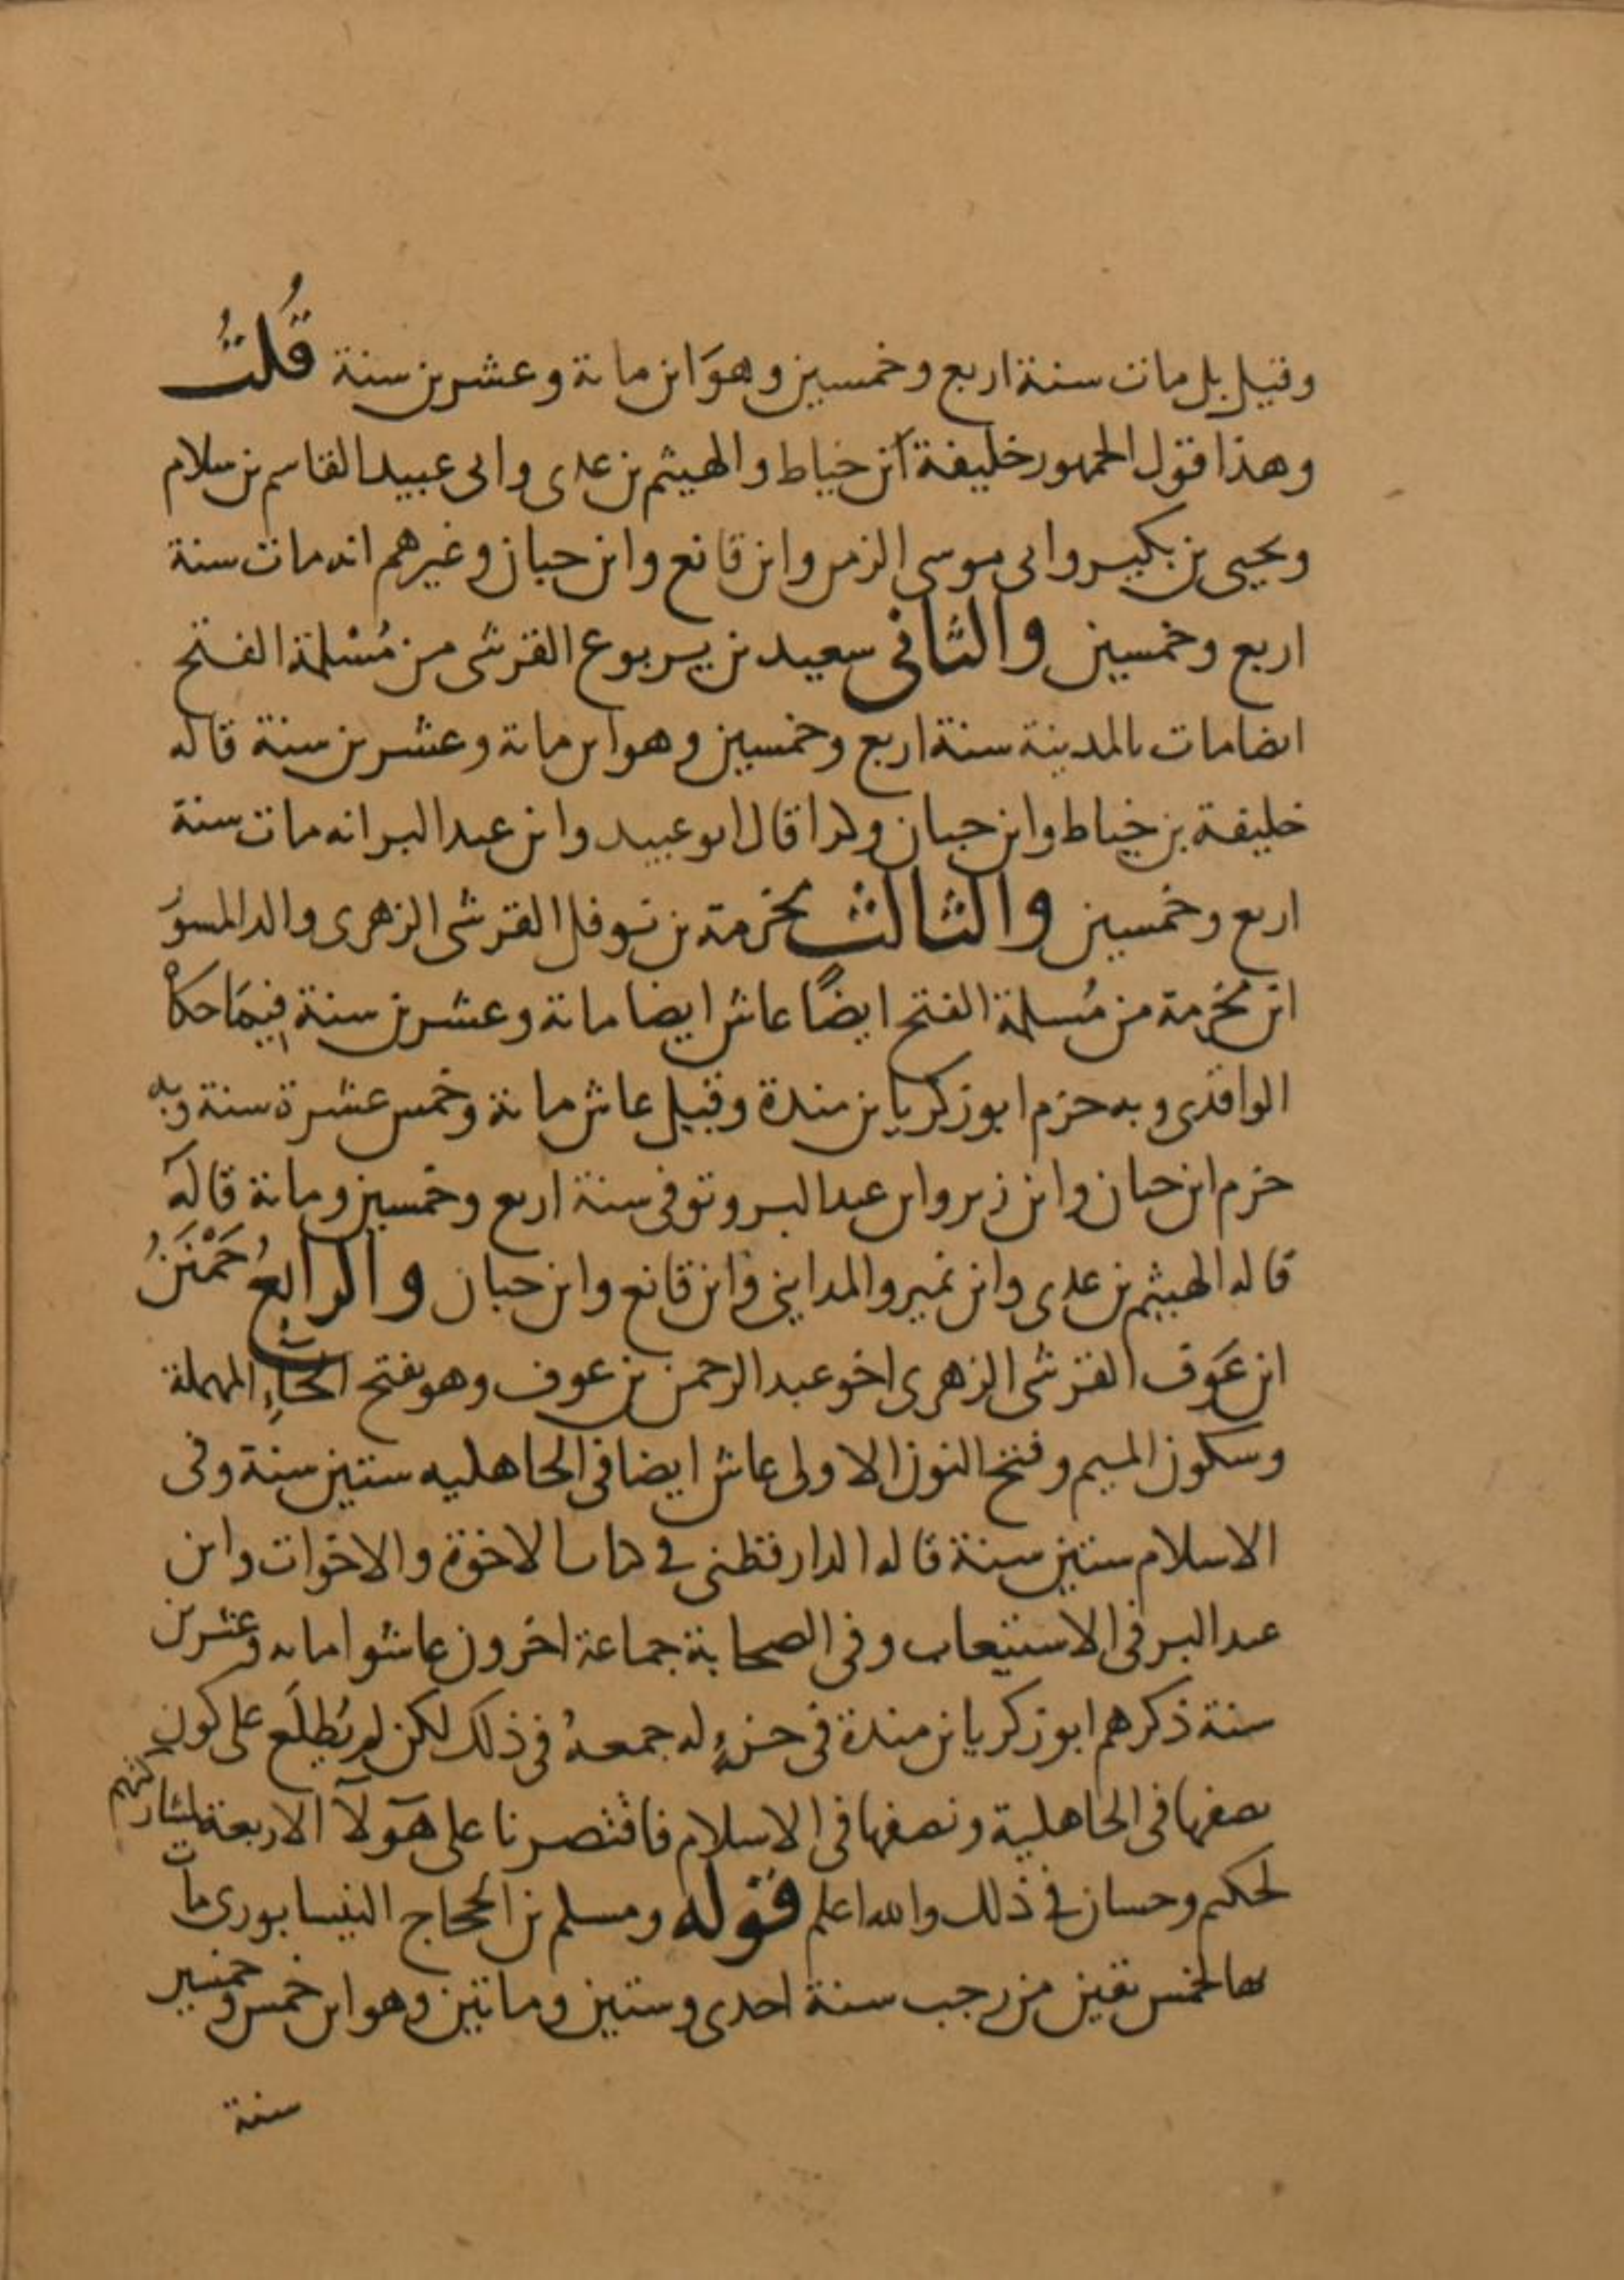 وقيل بل مات سنة اربع وخمسين وهوَ ابن مائة وعشرين سنة قُلتُ
وهذا قول الجمهور خليفة ابن خياط والهيثم بن عدى وابى عبيد القاسم بن سلام
ويحيى بن بكير وابى موسى الزمن وابن قانع وابن حبان وغيرهم انه مات سنة
اربع وخمسين والثانى سعيد بن يربوع القرشى من مُسْلمة الفتح
ايضا مات بالمدينة سنة اربع وخمسين وهو ابن مائة وعشرين سنة قاله
خليفة بن خياط وابن حبان وكذا قال ابو عبيد وابن عبد البر انه مات سنة
اربع وخمسين والثالث مخرمة بن نوفل القرشى الزهرى والد المسوَر
ابن مَخرمة من مُسلمة الفتح ايضًا عاش ايضا مائة وعشرين سنة فيمَا حكاهُ
الواقدى وبه جزم ابو زكريا بن مندة وقيل عاش مائة وخمس عشرة سنة وبه
جزم ابن حبان وابن زبر وابن عبد البر وتوفى سنة اربع وخمسين ومائة قاله
قاله الهيثم بن عدى وابن نمير والمداينى وابن قانع وابن حبان والرابعُ حَمْنَنُ
ابن عَوف القرشى الزهرى اخو عبد الرحمن بن عوف وهو بفتح الحَاءِ المهملة
وسكون الميم وفتح النون الاولى عاش ايضا فى الجاهليه ستين سنة وفى
الاسلام ستين سنة قاله الدارقطنى في كتاب الاخوة والاخوات وابن
عبد البر فى الاستيعاب وفى الصحابة جماعة اخرون عاشوا مائه وعشرين
سنة ذكرهم ابو زكريا بن مندة فى جزءٍ له جمعهُ فى ذلك لكن لم يُطلَع على كون
نصفها فى الجاهلية ونصفها فى الاسلام فاقتصرنا على هؤلآ الاربعة لمشاركتهم
لحكيم وحسان في ذلك والله اعلم قوله ومسلم بن الحجاج النيسابورى مات
بها لخمس بقين من رجب سنة احدى وستين ومائتين وهو ابن خمس وخمسين
سنة